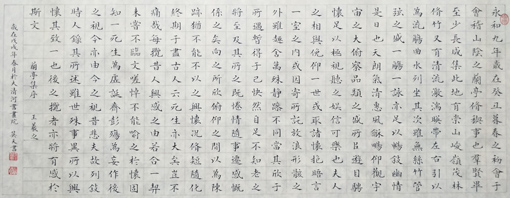 永和九年歲在癸丑暮春之初會于
會稽山陰之蘭亭脩禊事也羣賢畢
至少長咸集此地有崇山峻嶺茂林
脩竹又有清流激湍映帶左右引以
為流觴曲水列坐其次雖無絲竹管
弦之盛一觴一詠亦足以暢敘幽情
是日也天朗氣清惠風和暢仰觀宇
宙之大俯察品類之盛所以遊目騁
懷足以極視聽之娛信可樂也夫人
之相與俯仰一世或取諸懷抱晤言
一室之內或因寄所託放浪形骸之
外雖趣舍萬殊靜躁不同當其欣於
所遇暫得于己快然自足不知老之
將至及其所之既倦情隨事遷感慨
係之矣向之所欣俛仰之間以為陳
跡猶不能不以之興懷況脩短隨化
終期于盡古人云死生亦大矣豈不
痛哉每攬昔人興感之由若合一契
未嘗不臨文嗟悼不能喻之於懷固
知一死生為虛誕齊彭殤為妄作後
之視今亦由今之視昔悲夫故列敘
時人錄其所述雖世殊事異所以興
懷其致一也後之攬者亦將有感於
斯文
蘭亭集序 王羲之